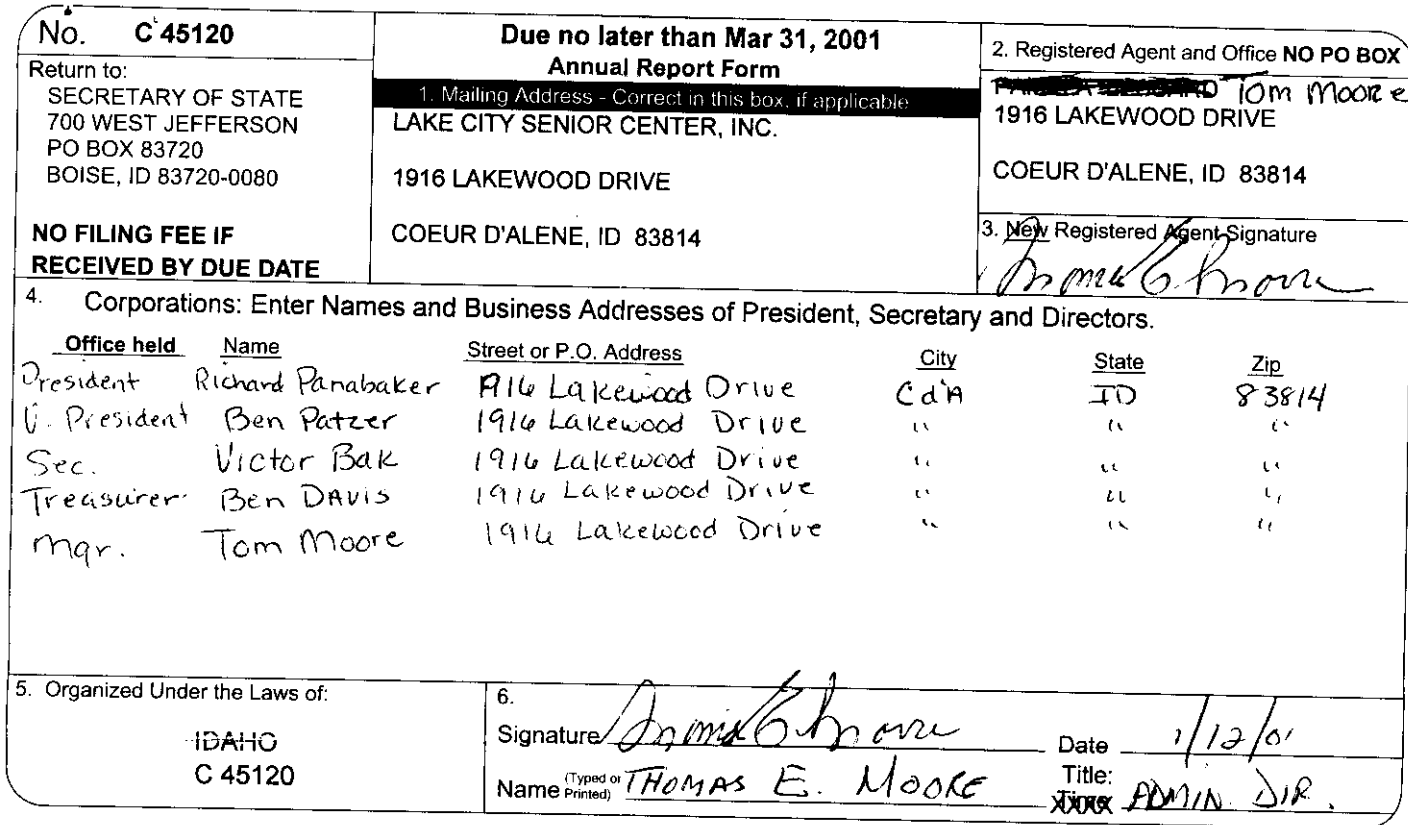 No. C 45120
Return to:
SECRETARY OF STATE
700 WEST JEFFERSON
PO BOX 83720
BOISE, ID 83720-0080
NO FILING FEE IF
RECEIVED BY DUE DATE
Due no later than Mar 31, 2001
Annual Report Form
1. Mailing Address - Correct in this box, if applicable
LAKE CITY SENIOR CENTER, INC.
1916 LAKEWOOD DRIVE
COEUR D'ALENE, ID 83814
2. Registered Agent and Office NO PO BOX
Tom Moore
1916 LAKEWOOD DRIVE
COEUR D'ALENE, ID 83814
3. New Registered Agent Signature
4. Corporations: Enter Names and Business Addresses of President, Secretary and Directors.
Office held Name Street or P.O. Address City State Zip
President Richard Panabaker 1916 Lakewood Drive Cd'A ID 83814
V. President Ben Patzer 1916 Lakewood Drive " " "
Sec. Victor Bak 1916 Lakewood Drive " " "
Treasurer Ben DAvis 1916 Lakewood Drive " " "
Mgr. Tom Moore 1916 Lakewood Drive " " "
5. Organized Under the Laws of:
IDAHO
C 45120
6.
Signature Date 1/12/01
Name (Typed or Printed) THOMAS E. MOORE Title: ADMIN. DIR.